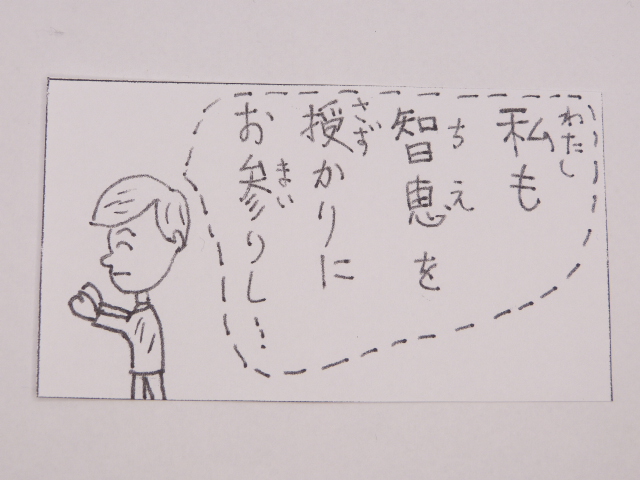 私も
わたし
智恵を
ちえ
授かりに
さず
お参りし…
まい